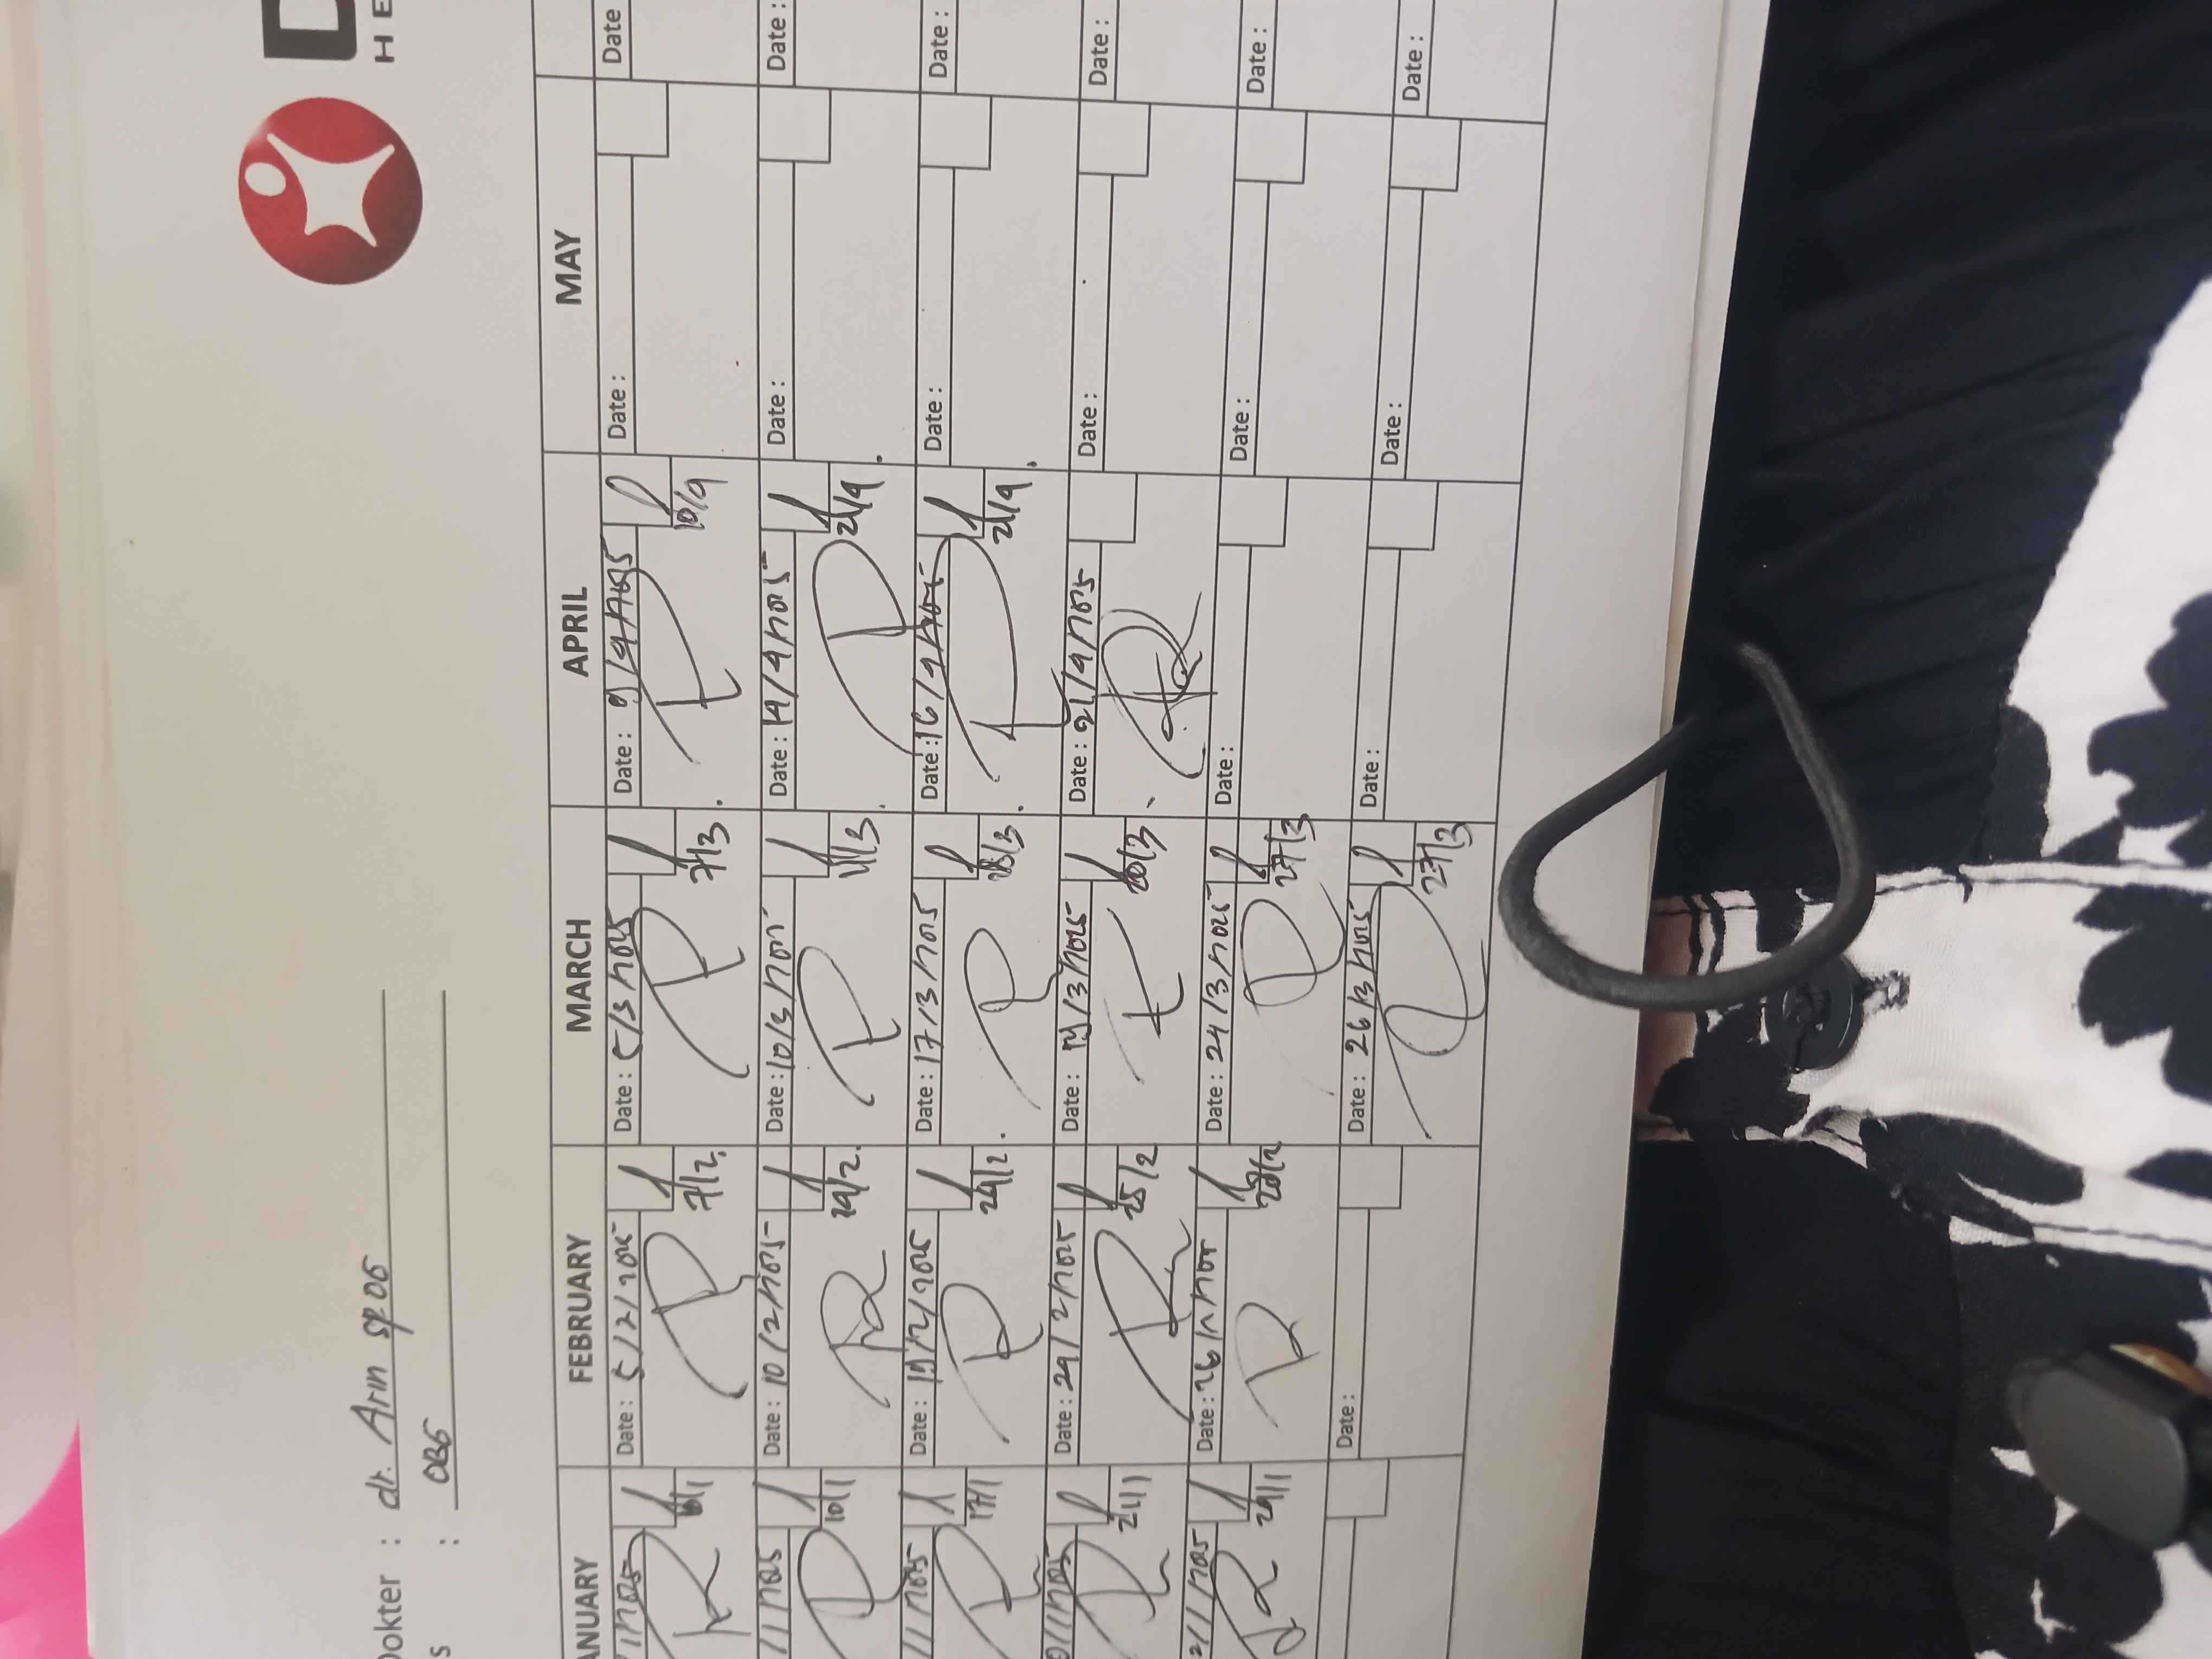 D
HE
Dokter : dr. Arin SpOG
s : OBG
JANUARY FEBRUARY MARCH APRIL MAY
Date : 5/2/2025 Date : 5/3/2025 Date : 9/4/2025 Date : Date
7/2 7/3 10/4
Date : 10/2/2025 Date : 10/3/2025 Date : 14/4/2025 Date : Date :
10/1 14/2 11/3 21/4
Date : 19/2/2025 Date : 17/3/2025 Date : 16/4/2025 Date : Date :
17/1 24/2 18/3 21/4
Date : 24/2/2025 Date : 19/3/2025 Date : 21/4/2025 Date : Date :
21/1 25/2 20/3
Date : 26/2/2025 Date : 24/3/2025 Date : Date : Date :
24/1 28/2 27/3
Date : Date : 26/3/2025 Date : Date : Date :
27/3